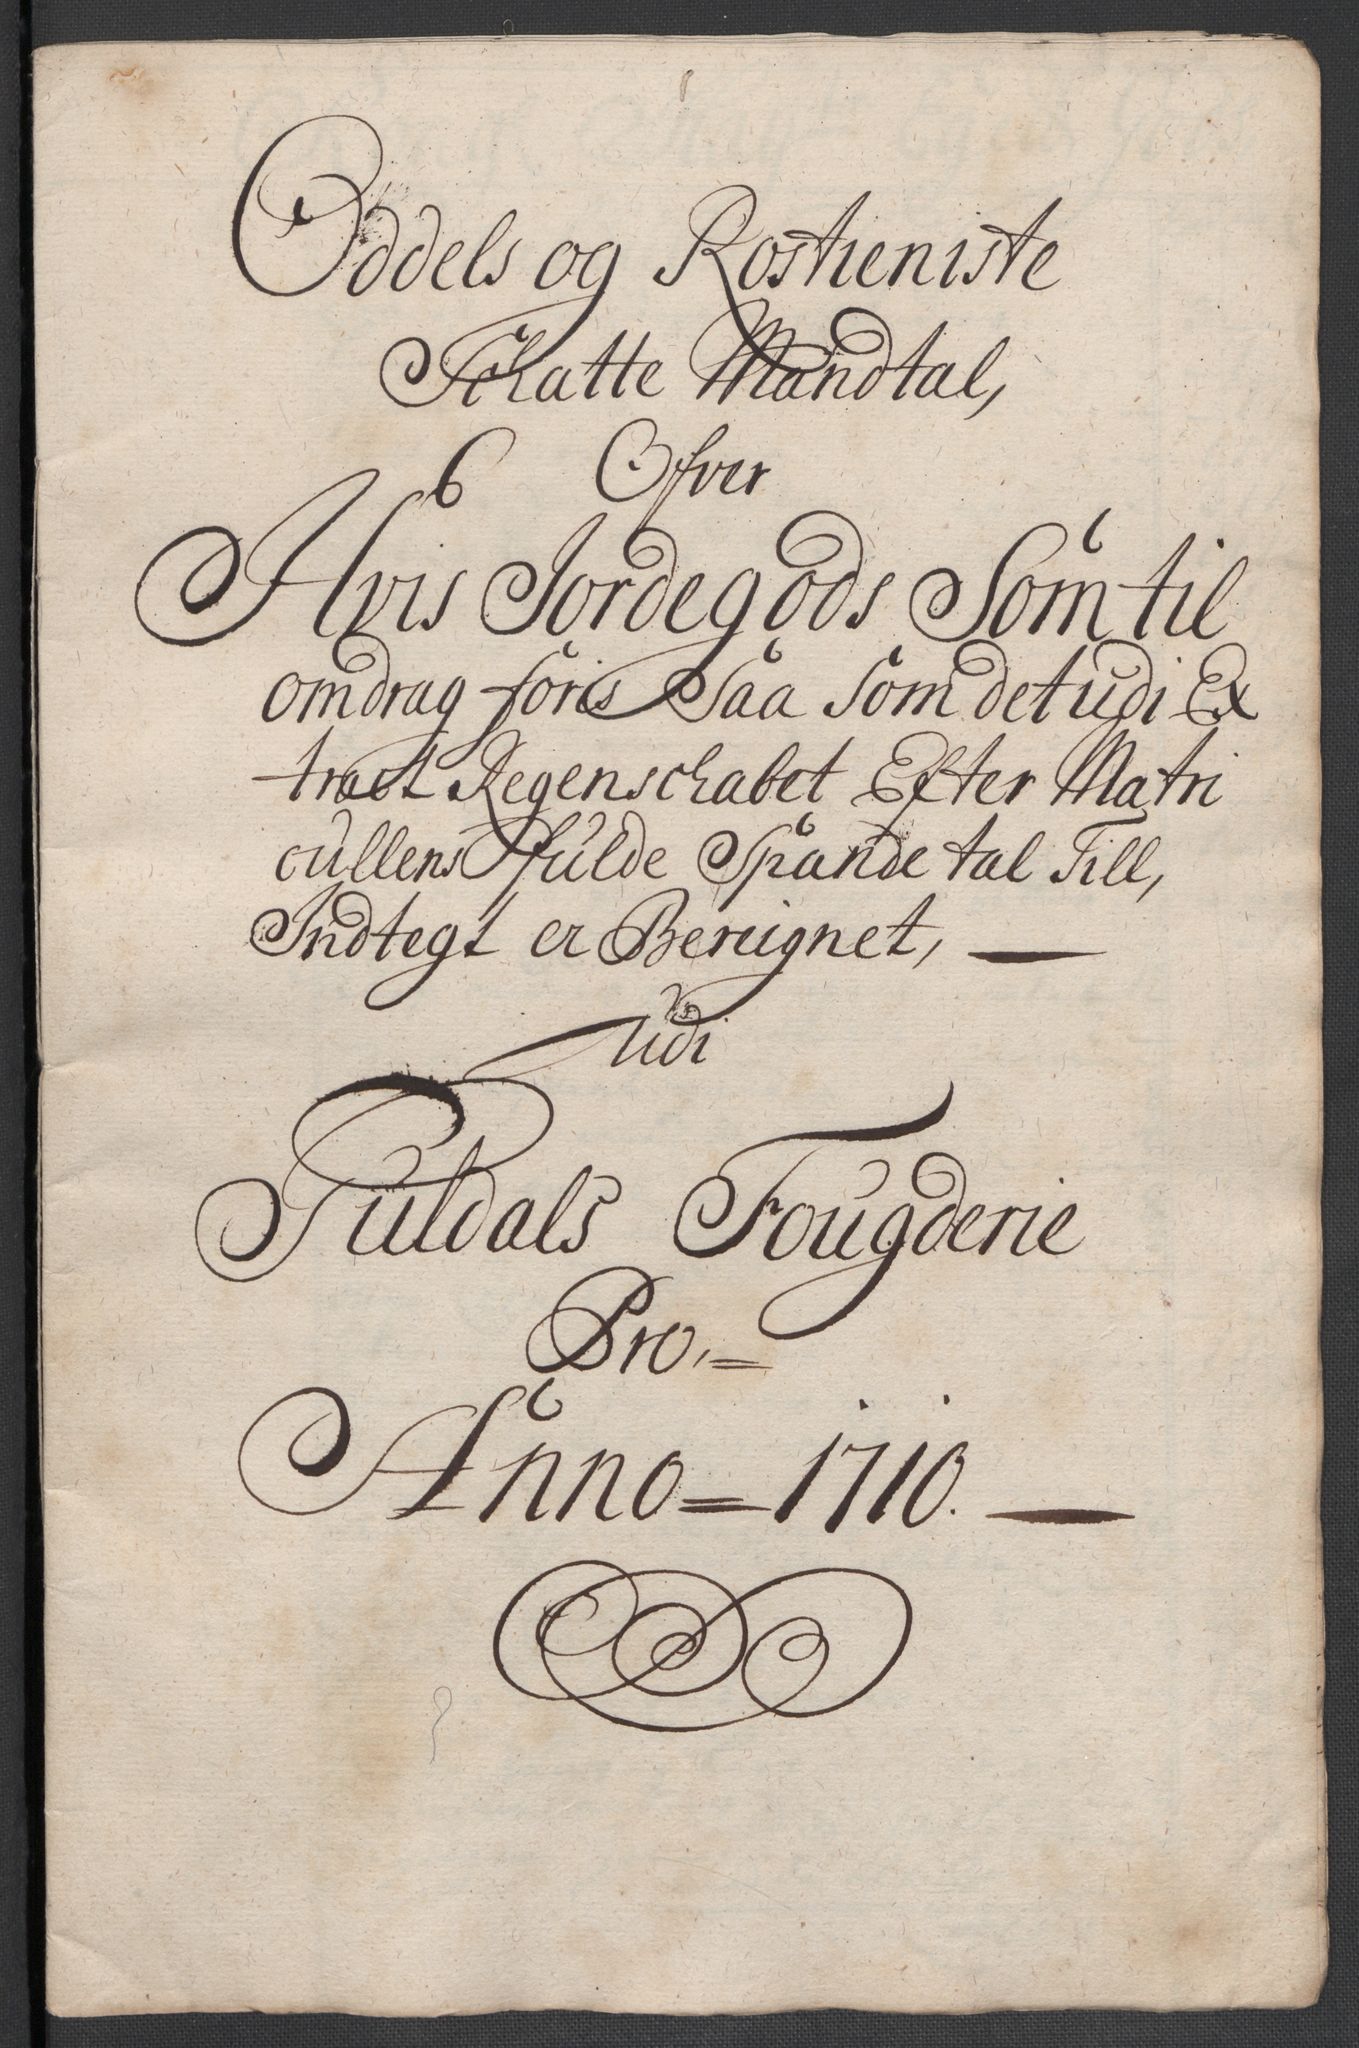 Oddels og Rostieniste
Schatte Mandtal,
Ofver
Hvis Jordegods Som til
omdrag föris Saa Som det udi Ex
tract Regenschabet Efter Matri
cullens fulde Spande tal Till,
Indtegt er Bereignet,
udi
Guldals Fougderie
Pro,=
Anno=1710.